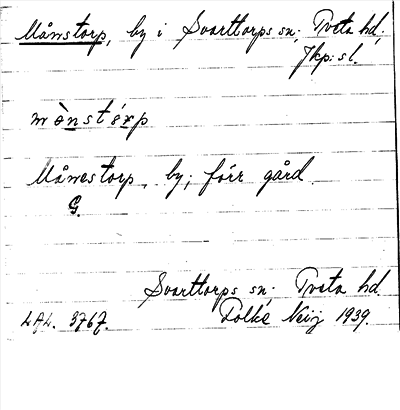 Månstorp, by i Svarttorps sn; Tveta hd,
Jkp: sl.
mònstórp
Månestorp, by; förr gård.
G.
Svarttorps sn. Tveta hd.
LAL. 3767. Folke Neij 1939.